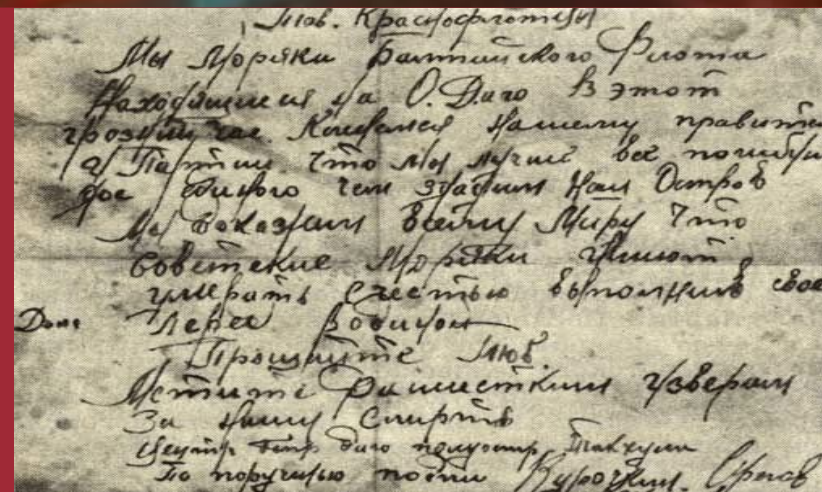 Тов. Краснофлотцы
Мы Моряки Балтийского Флота
Находящиеся на О. Даго В этот
грозный час Клянемся Нашему правите
и Партии что мы лучше все погибн
до единого чем здадим Наш Остров
Мы докажим всему Миру что
советские Моряки умиют
умерать с честью выполнив свое
Долг Перед Родиной
Прощайте Тов.
Мстите Фашистким Узверам
За нашу Смерть
полуостр Тахкуна
По поручению подпи Курочкин.